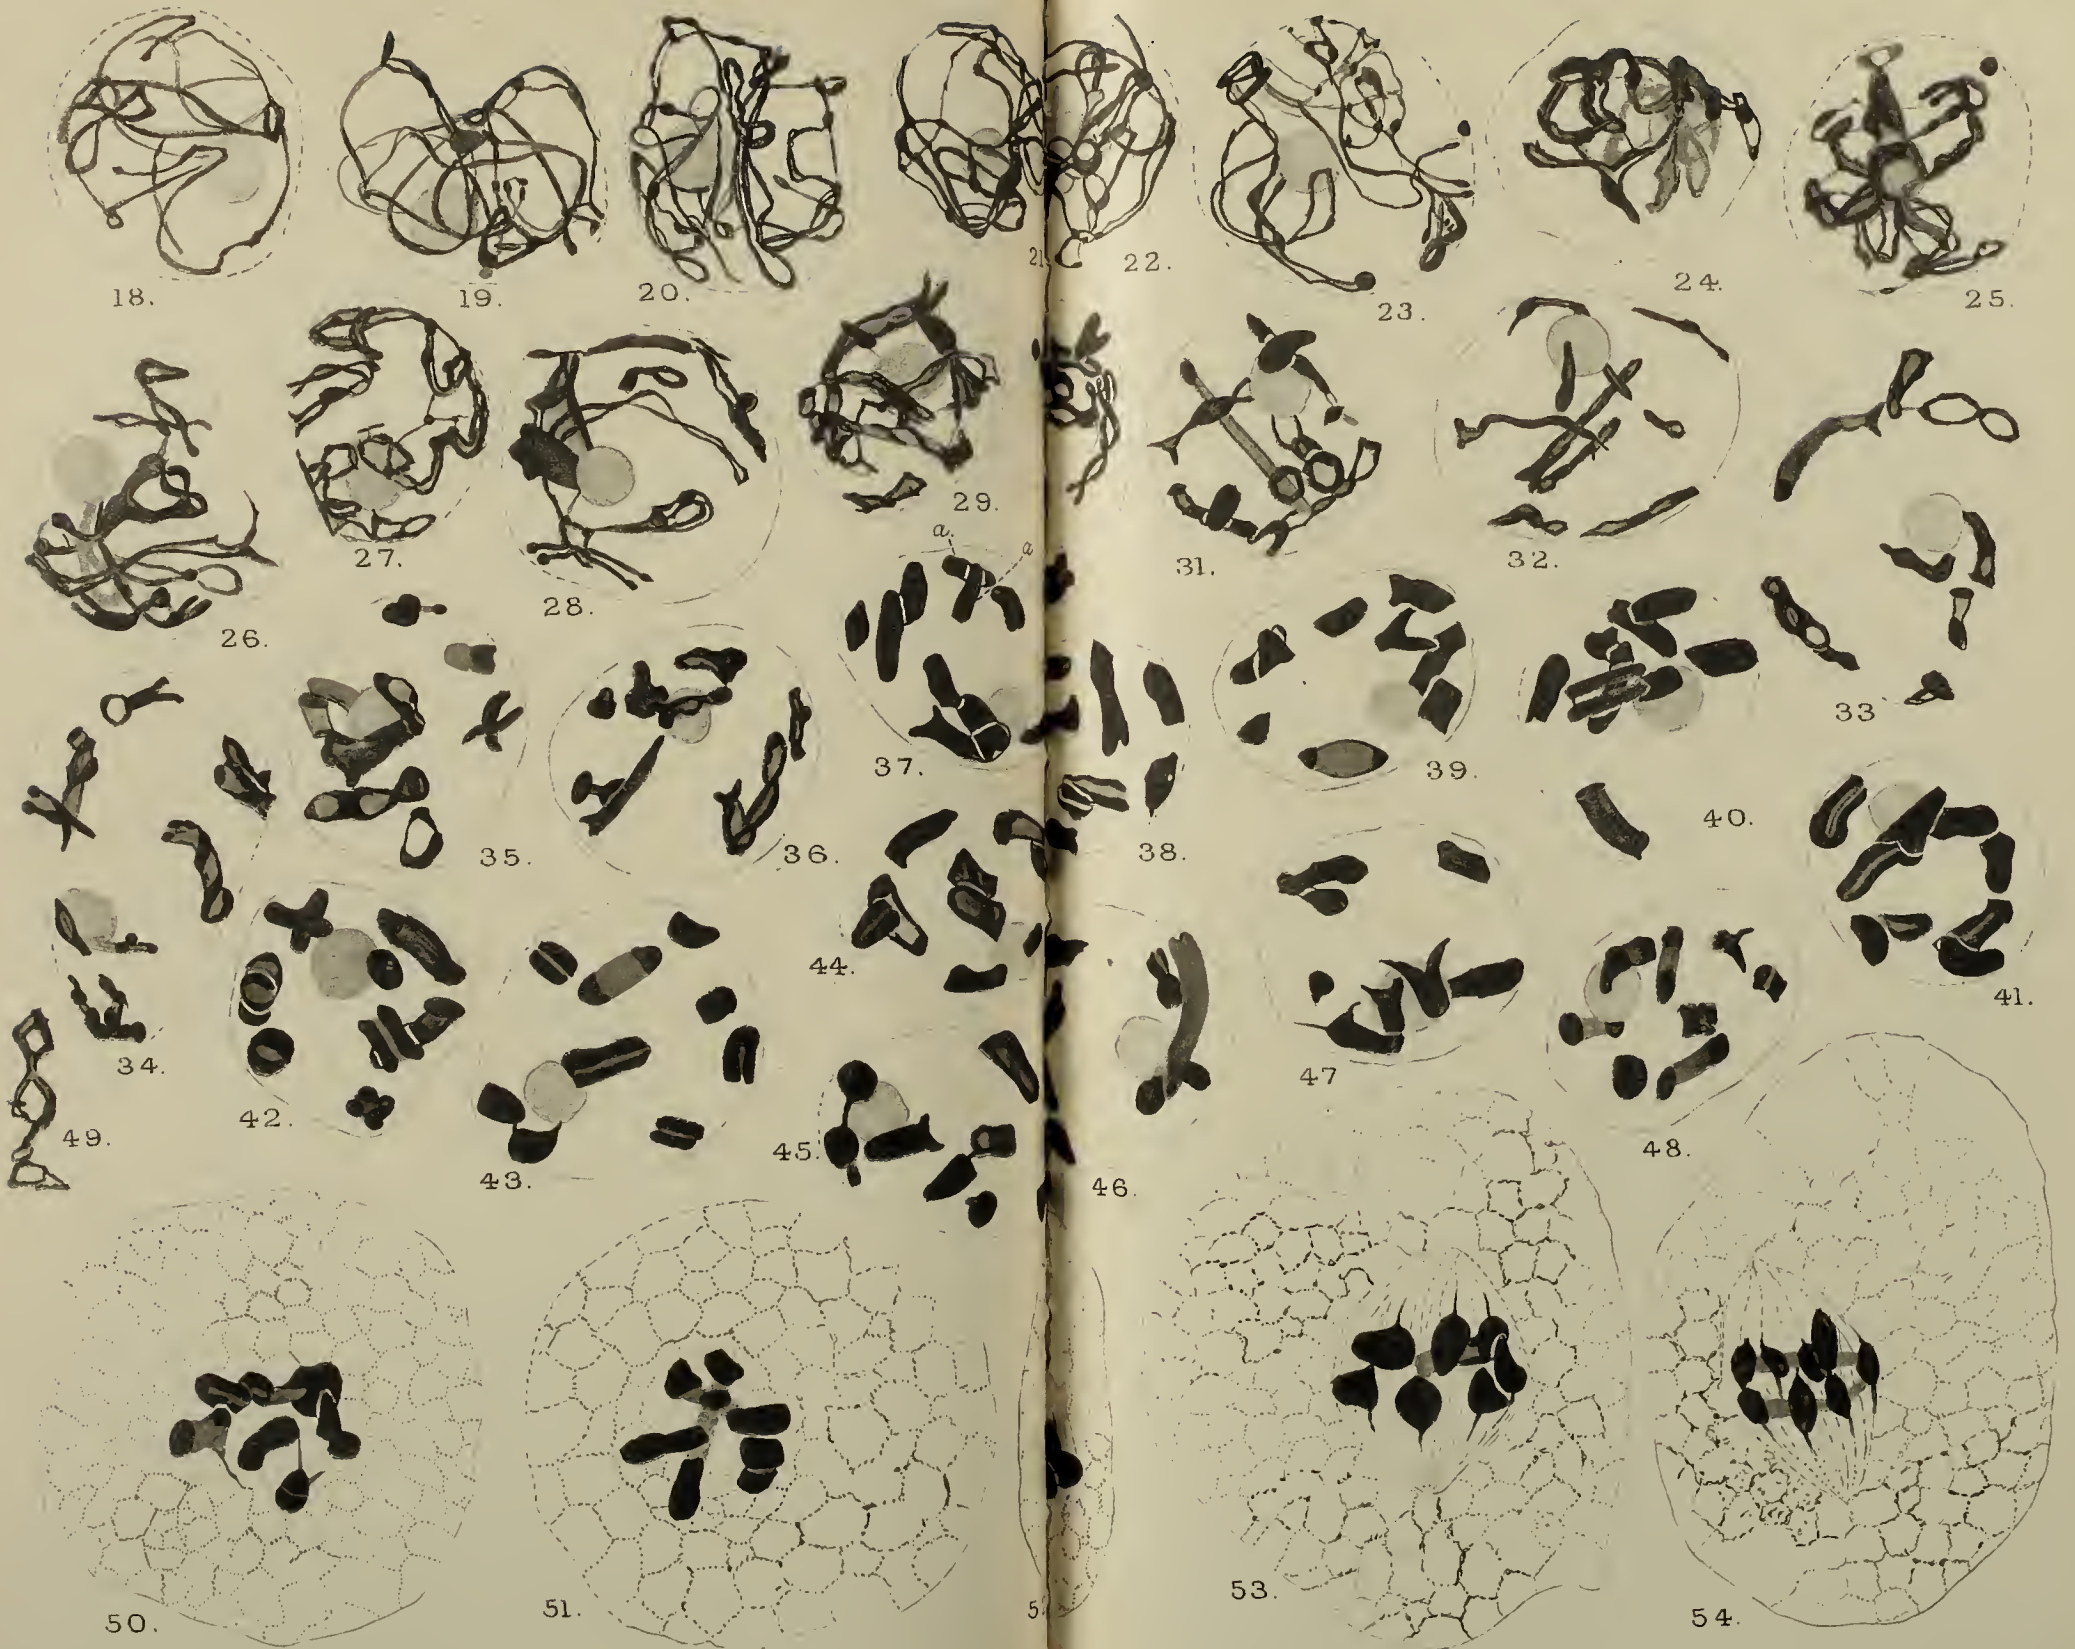 18.
19.
20.
21
22.
23.
24.
25.
26.
27.
28.
29.
31.
32.
33
34.
35.
36.
a.
a
37.
38.
39.
40.
41.
42.
43.
44.
45.
46.
47
48.
49.
50.
51.
53.
54.